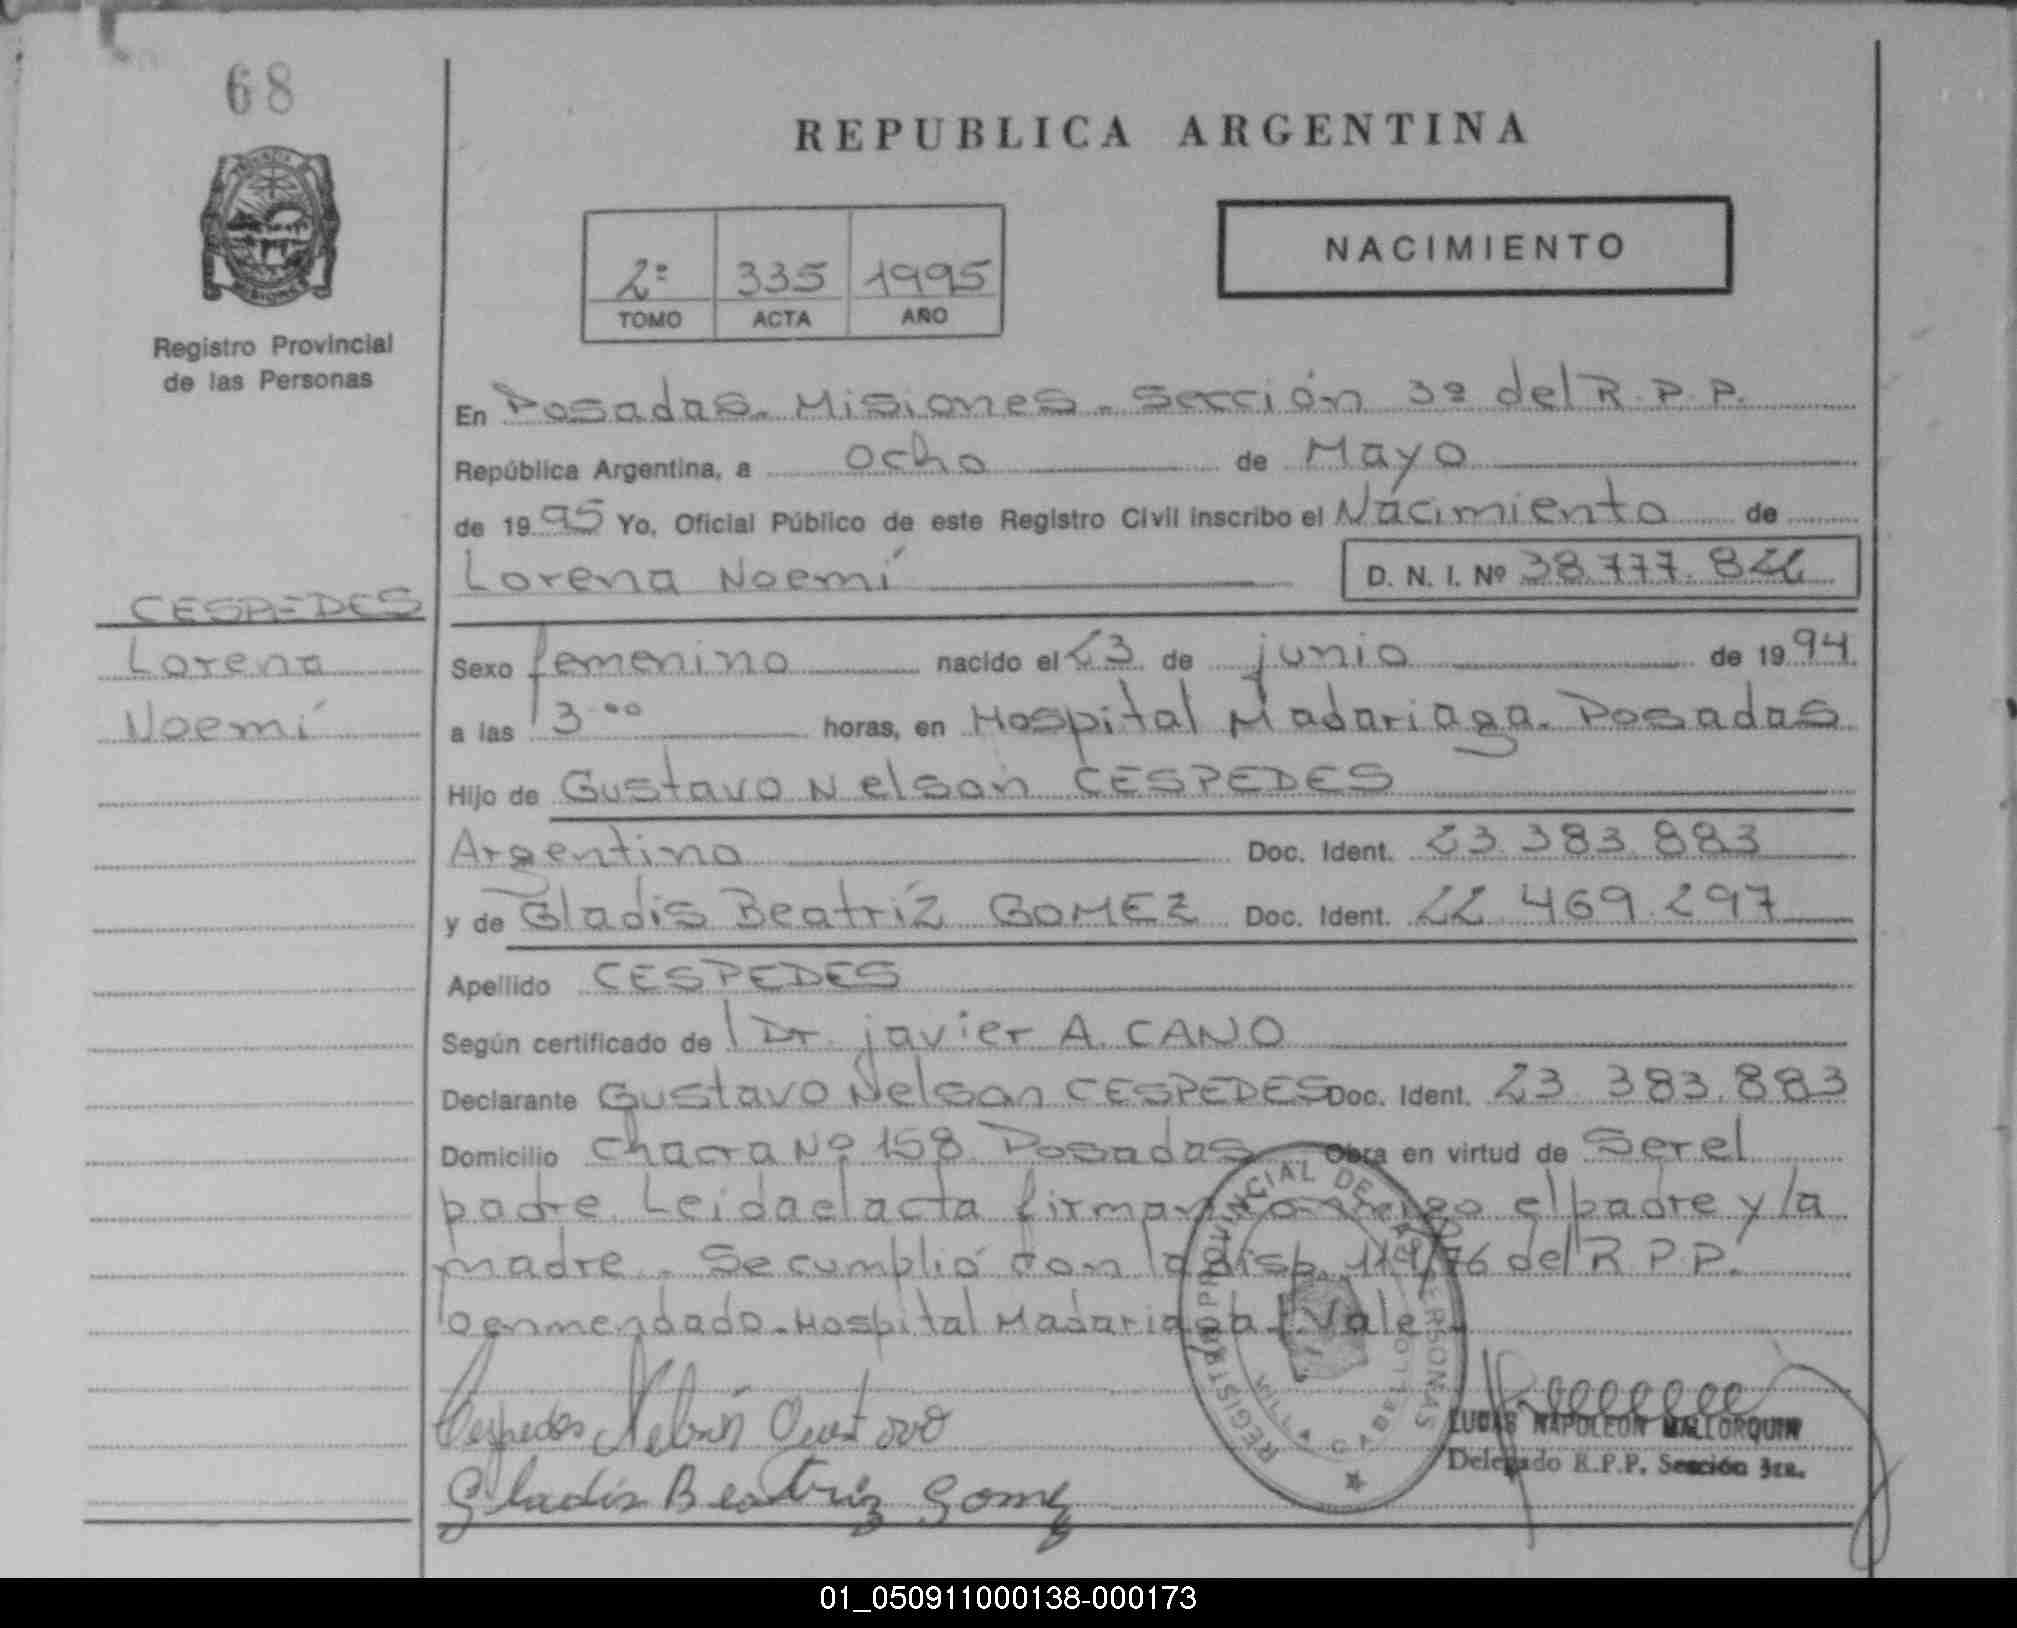 68
REPUBLICA ARGENTINA
NACIMIENTO
2º 335 1995
TOMO ACTA AÑO
Registro Provincial
de las Personas
En Posadas. Misiones. Sección 3º del R.P.P.
República Argentina, a ocho de Mayo
de 1995 Yo, Oficial Público de este Registro Civil inscribo el Nacimiento de
Lorena Noemí D. N. I. Nº 38.777.826
CESPEDES
Lorena
Noemí
Sexo femenino nacido el 23 de junio de 1994.
a las 13 ºº horas, en Hospital Madariaga. Posadas
Hijo de Gustavo Nelson CESPEDES
Argentino Doc. Ident. 23.383.883
y de Gladis Beatríz GOMEZ Doc. Ident. 22.469.297
Apellido CESPEDES
Según certificado de Dr. javier A. CANO
Declarante Gustavo Nelson CESPEDES Doc. Ident. 23.383.883
Domicilio Chacra Nº 158 Posadas Obra en virtud de Ser el
padre. Leida el acta firman conmigo el padre y la
madre. Se cumplió con la disp. 114/76 del R.P.P.
lo enmendado. Hospital Madariaga. Vale
Cespedes Nelson Gustavo
Gladis Beatriz Gomez
REGISTRO PROVINCIAL DE LAS PERSONAS
VILLA CABELLO
LUCAS NAPOLEON MALLORQUIN
Delegado R.P.P. Sección 3ra.
01_050911000138-000173